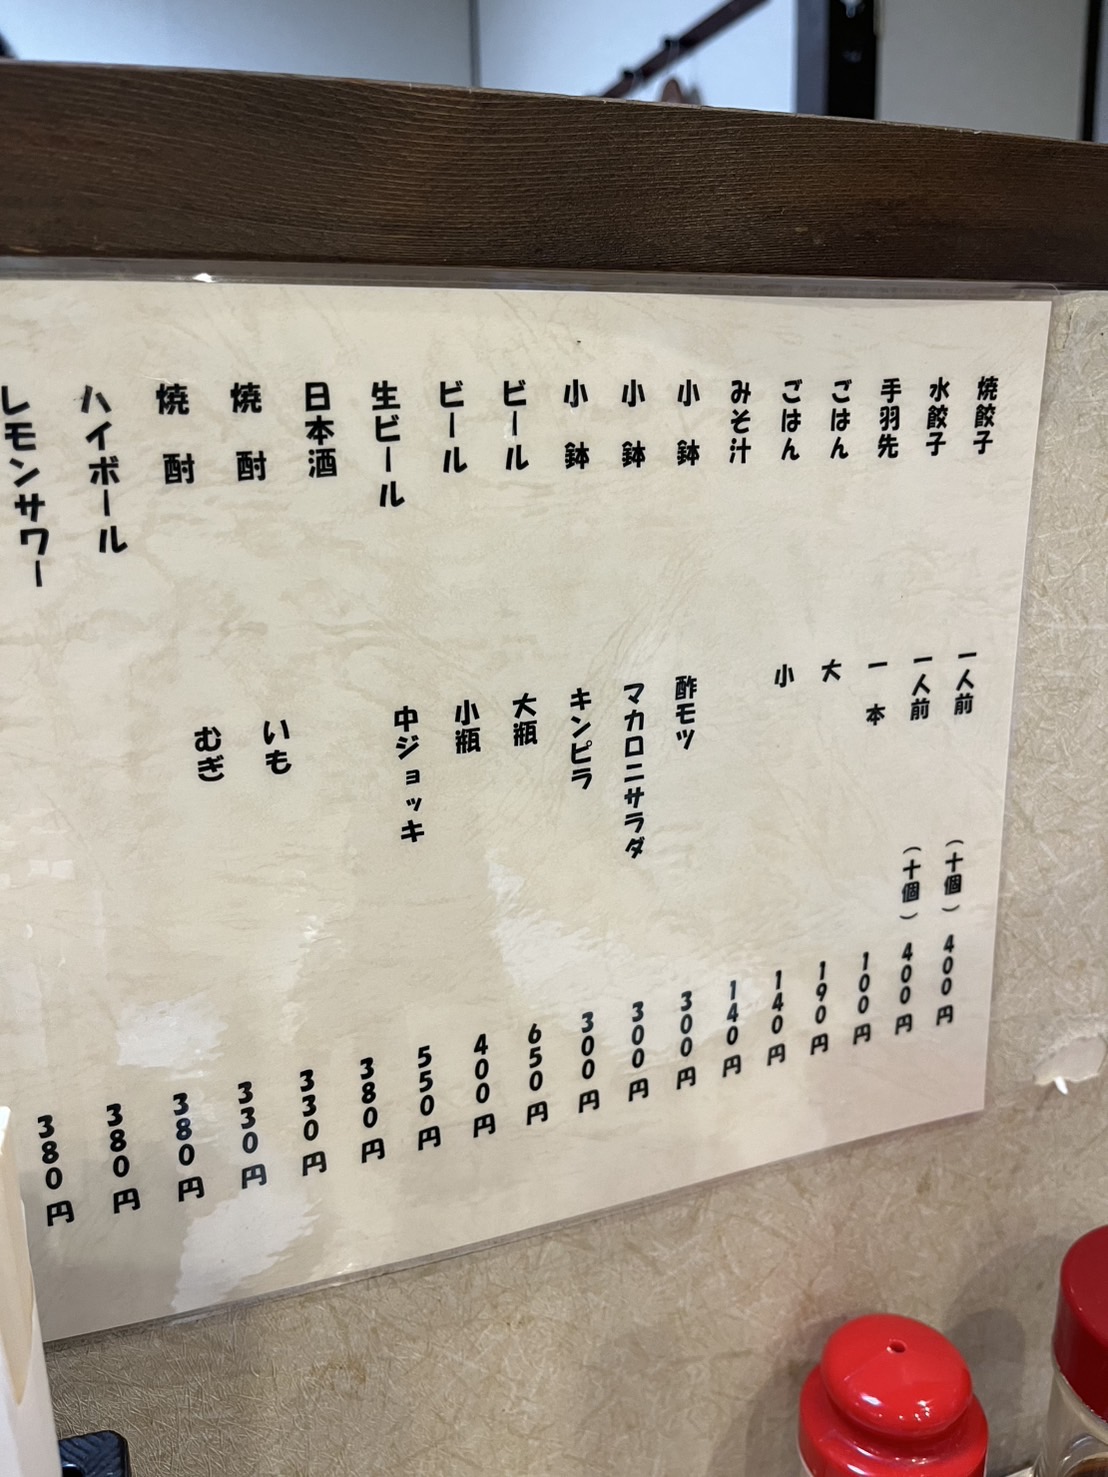 焼餃子 一人前 （十個） 400円
水餃子 一人前 （十個） 400円
手羽先 一本 100円
ごはん 大 190円
ごはん 小 140円
みそ汁 140円
小鉢 酢モツ 300円
小鉢 マカロニサラダ 300円
小鉢 キンピラ 300円
ビール 大瓶 650円
ビール 小瓶 400円
生ビール 中ジョッキ 550円
日本酒 380円
焼酎 いも 330円
焼酎 むぎ 330円
ハイボール 380円
レモンサワー 380円
380円